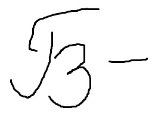 √3 -